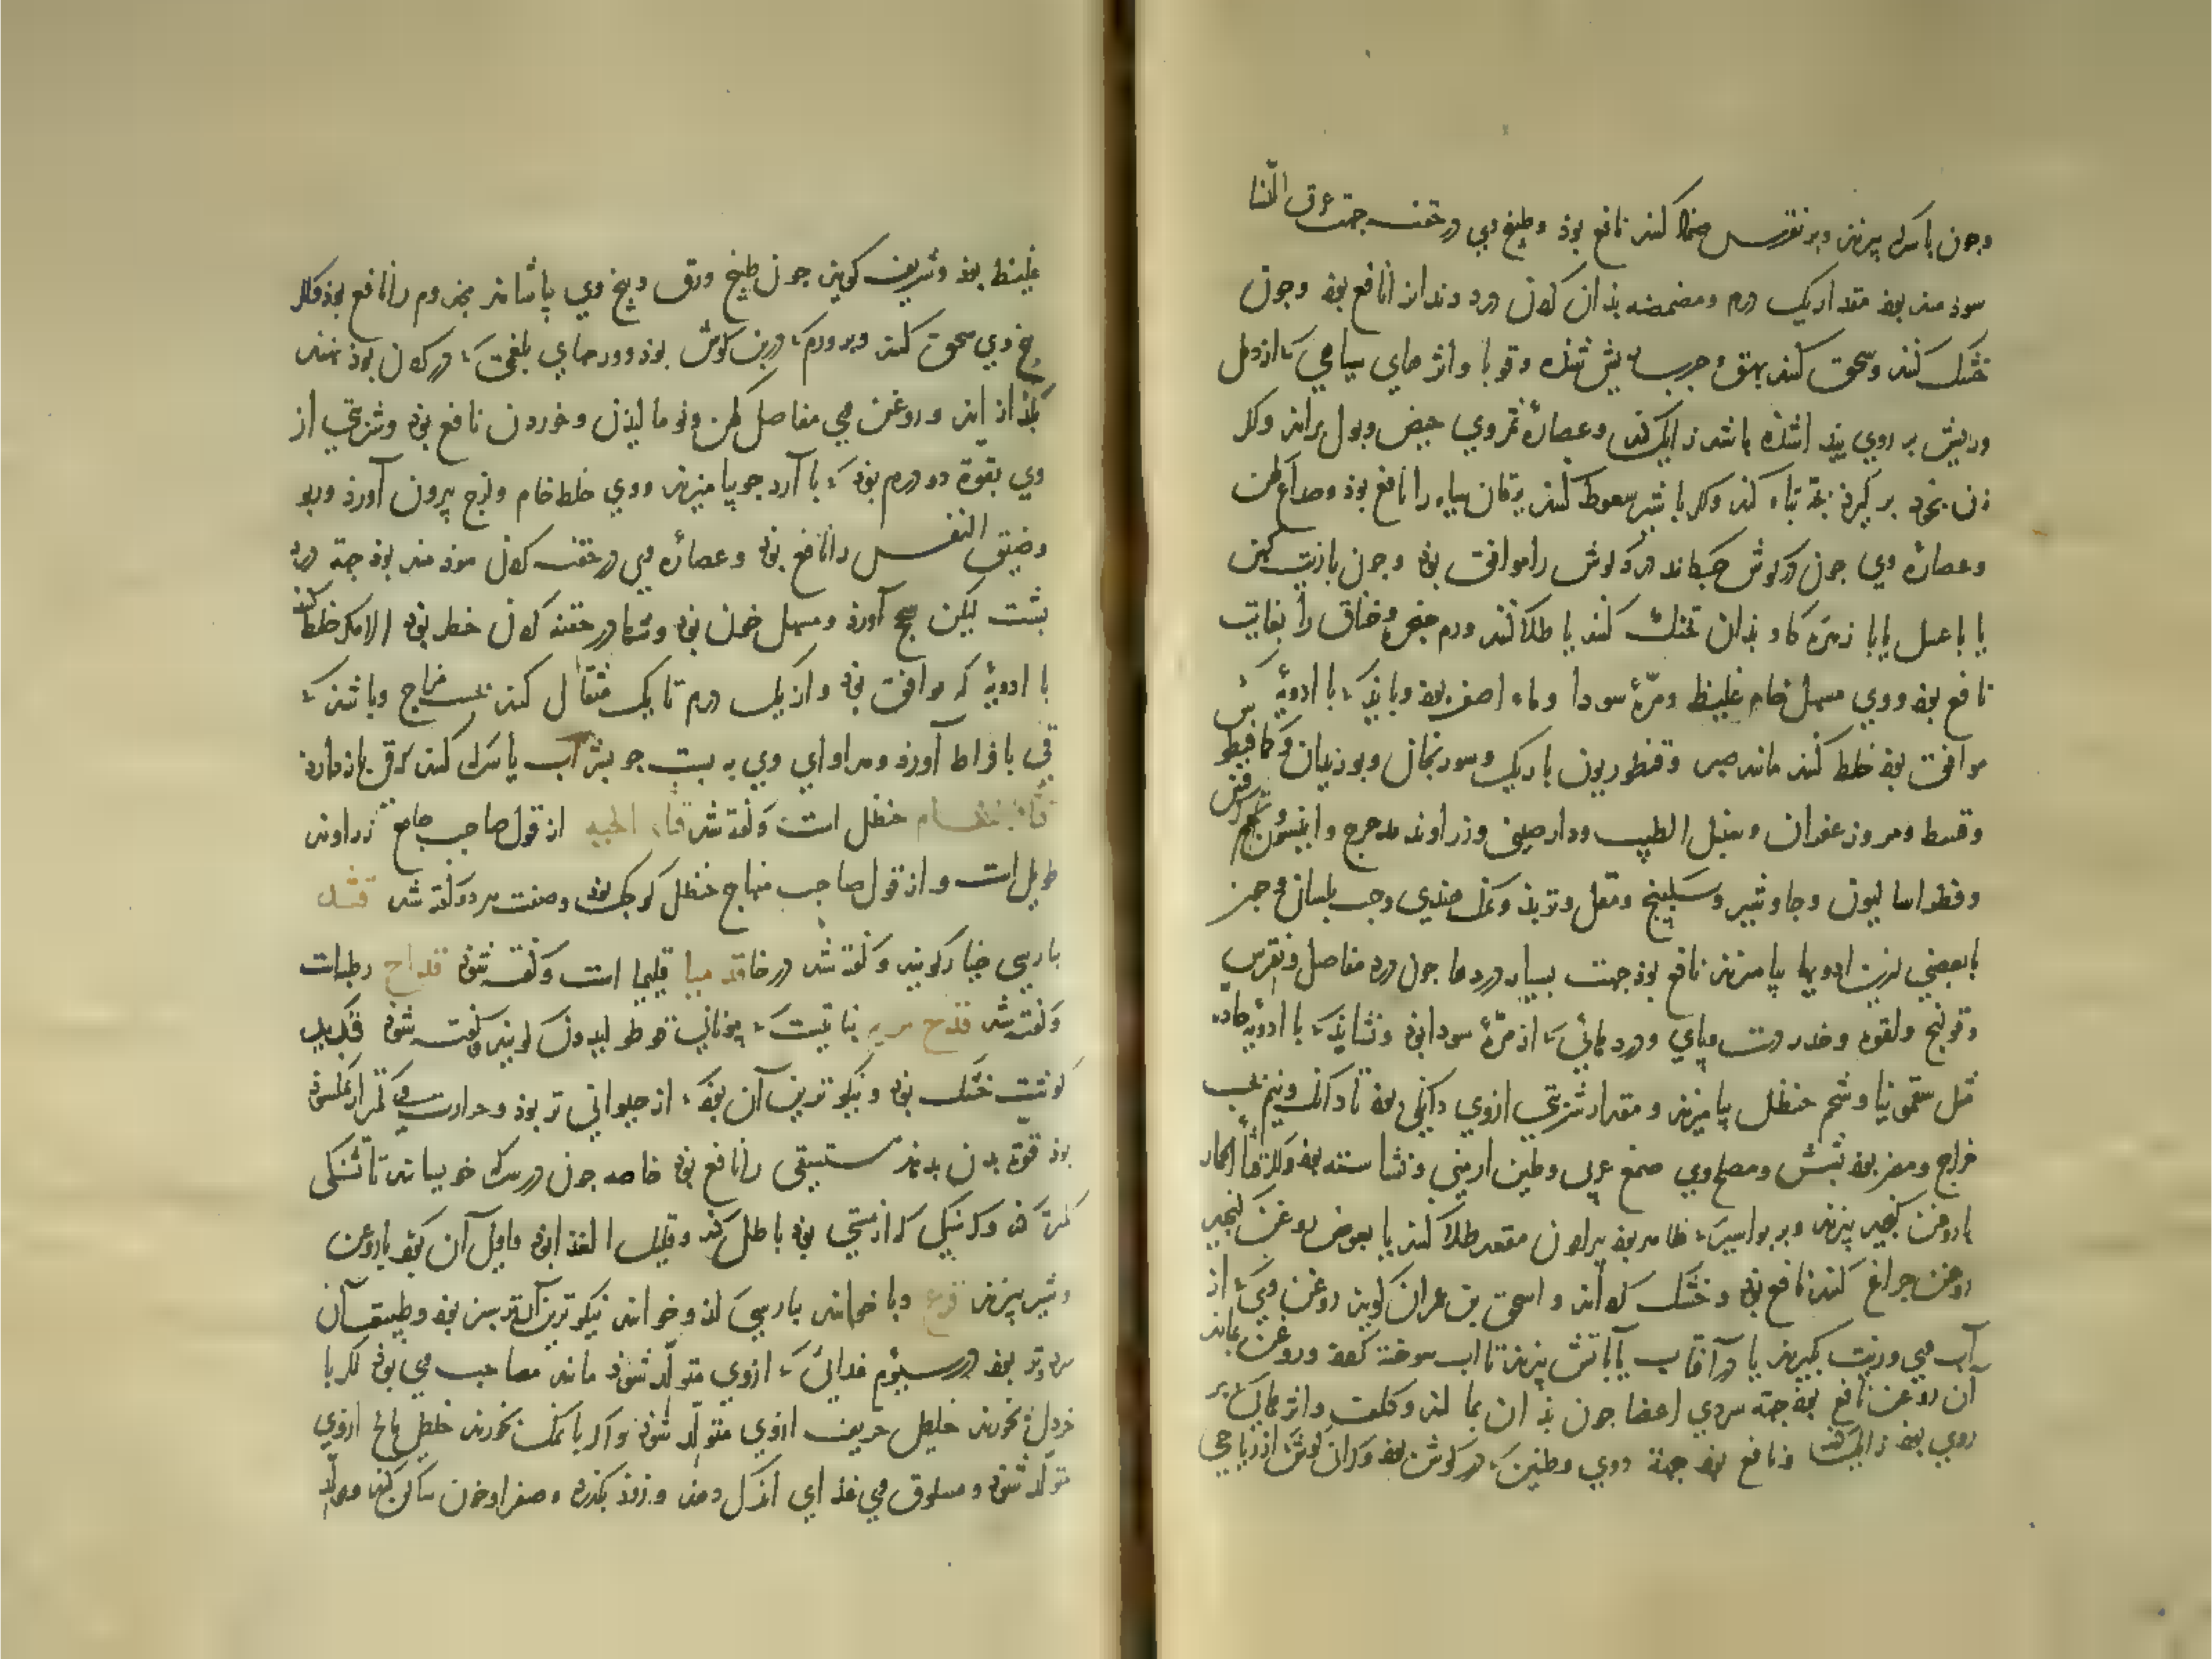 وجون با سرکه بپزند وبر نقرس ضماد کنند نافع بوذ وطبیخ وی در حقنه جهت عرق النسا
سوذمند بوذ مقدار یک درم ومضمضه بذان کردن درد دندان را نافع بوذ وجون
خشک کنند وسحق کنند بهق وجرب ریش شده وقوبا واثرهای سیاهی که از دمل
وریش بر روی پیدا شده باشد زایل کند وعصاره ثمر وی حیض وبول براند واکر
زن بخود بر کیرد بجه تباه کند واکر با شیر سعوط کنند یرقان سیاه را نافع بوذ وصداع کهن
وعصاره وی جون در کوش جکانند درد کوش را موافق بوذ وجون با زیت کهن
یا با عسل یا با زهره کاو بذان تحنک کنند یا طلا کنند ورم حنجره وخناق را بغایت
نافع بوذ ووی مسهل خام غلیظ ومره سودا وماء اصفر بوذ وباید که با ادویه کی
موافق بوذ خلط کنند مانند صبر وقنطوریون باریک وسورنجان وبوزیدان وکمافیطوس
وقسط ومر وزعفران وسنبل الطیب ودارصینی وزراوند مدحرج وانیسون وتخم کرفس
وفطراسالیون وجاوشیر وسکبینج ومقل وتربذ ونمک هندی وحب بلسان وجون
با بعضی ازین ادویها بیامیزند نافع بوذ جهت بسیار دردها جون درد مفاصل ونقرس
وقولنج ولقوه وخدر دست وپای ودردهائی که از مره سودا بوذ ونشاید که با ادویه حاده
مثل سقمونیا وشحم حنظل بیامیزند ومقدار شربتی از وی دانکی بوذ تا دانک ونیم بحسب
مزاج ومضر بوذ بشش ومصلح وی صمغ عربی وطین ارمنی ونشاسته بوذ واکر قثاء الحمار
با روغن کنجد بپزند وبر بواسیر که ظاهر بوذ پیرامون مقعد طلا کنند یا بعوض روغن کنجد
روغن جراغ کنند نافع بوذ وخشک کرداند واسحق بن عمران کوید روغن وی که از
آب وی وزیت کیرند یا در آفتاب یا با تش بپزند تا آب سوخته کردد وروغن بماند
آن روغن نافع بوذ جهت سردی اعضا جون بذان بمالند وکلف واثرهائی که بر
روی بوذ زایل کند ونافع بوذ جهة دوی وطنین که در کوش بوذ وکرانی کوش از ریاحی
غلیظ بوذ وشریف کوید جون طبیخ ورق وبیخ وی بیاشامند مجذوم را نافع بوذ واکر
بیخ وی سحق کنند وبر ورم که در بن کوش بوذ وورمهای بلغمی که در کردن بوذ نهند
بکذازاند وروغن وی مفاصل کهن ونو مالیدن وخوردن نافع بوذ وشربتی از
وی بقوة دو درم بوذ که با آرد جو بیامیزند ووی خلط خام ولزج بیرون آورد وربو
وضیق النفس را نافع بوذ وعصاره وی در حقنه کردن سودمند بوذ جهة درد
پشت لیکن سحج آورد ومسهل خون بوذ وتنها در حقنه کردن خطر بوذ الا مکر خلط کنند
با ادویه که موافق بوذ واز یک درم تا یک مثقال کنند بحسب مزاج وباشد که
قی بافراط آورد ومداوای وی به پست جو بشراب یا سرکه کنند که قی باز دارد
قثاء النعام حنظل است وکفته شد قثاء الحیه از قول صاحب جامع زراوند
طویل است واز قول صاحب منهاج حنظل کوجک بود وصفت هر دو کفته شد قثد
بارسی خیار کویند وکفته شد در خا قدمیا قلیما است وکفته شود قداح رطبه است
وکفته شد قدح مریم نباتیست که بیونانی قوطولیدون کویند وکفته شود قدید
کوشت خشک بوذ ونیکوترین آن بوذ که از حیوانی تر بوذ وحرارت وی کمتر از نمکسود
بوذ قوة بدن بدهد مستسقی را نافع بوذ خاصه جون در سرکه خویسانند تا تشنکی
کمتر کند وکرنبیکی که از مستی بوذ باطل کند وقلیل الغذا بوذ واولی آن بوذ که با روغن
وشیر بپزند قرع وبا خوانند بارسی کدو خوانند نیکوترین آن تر سبز بوذ وطبیعت آن
سرد وتر بوذ در سیوم غذائی که از وی متولد شود مانند مصاحب وی بوذ اکر با
خردل خورند خلطی حریف از وی متولد شود واکر با نمک خورند خلطی مالح از وی
متولد شود ومسلوق وی غذای اندک دهد وزود بکذرد وصفرا وخون ساکن کند ومولد